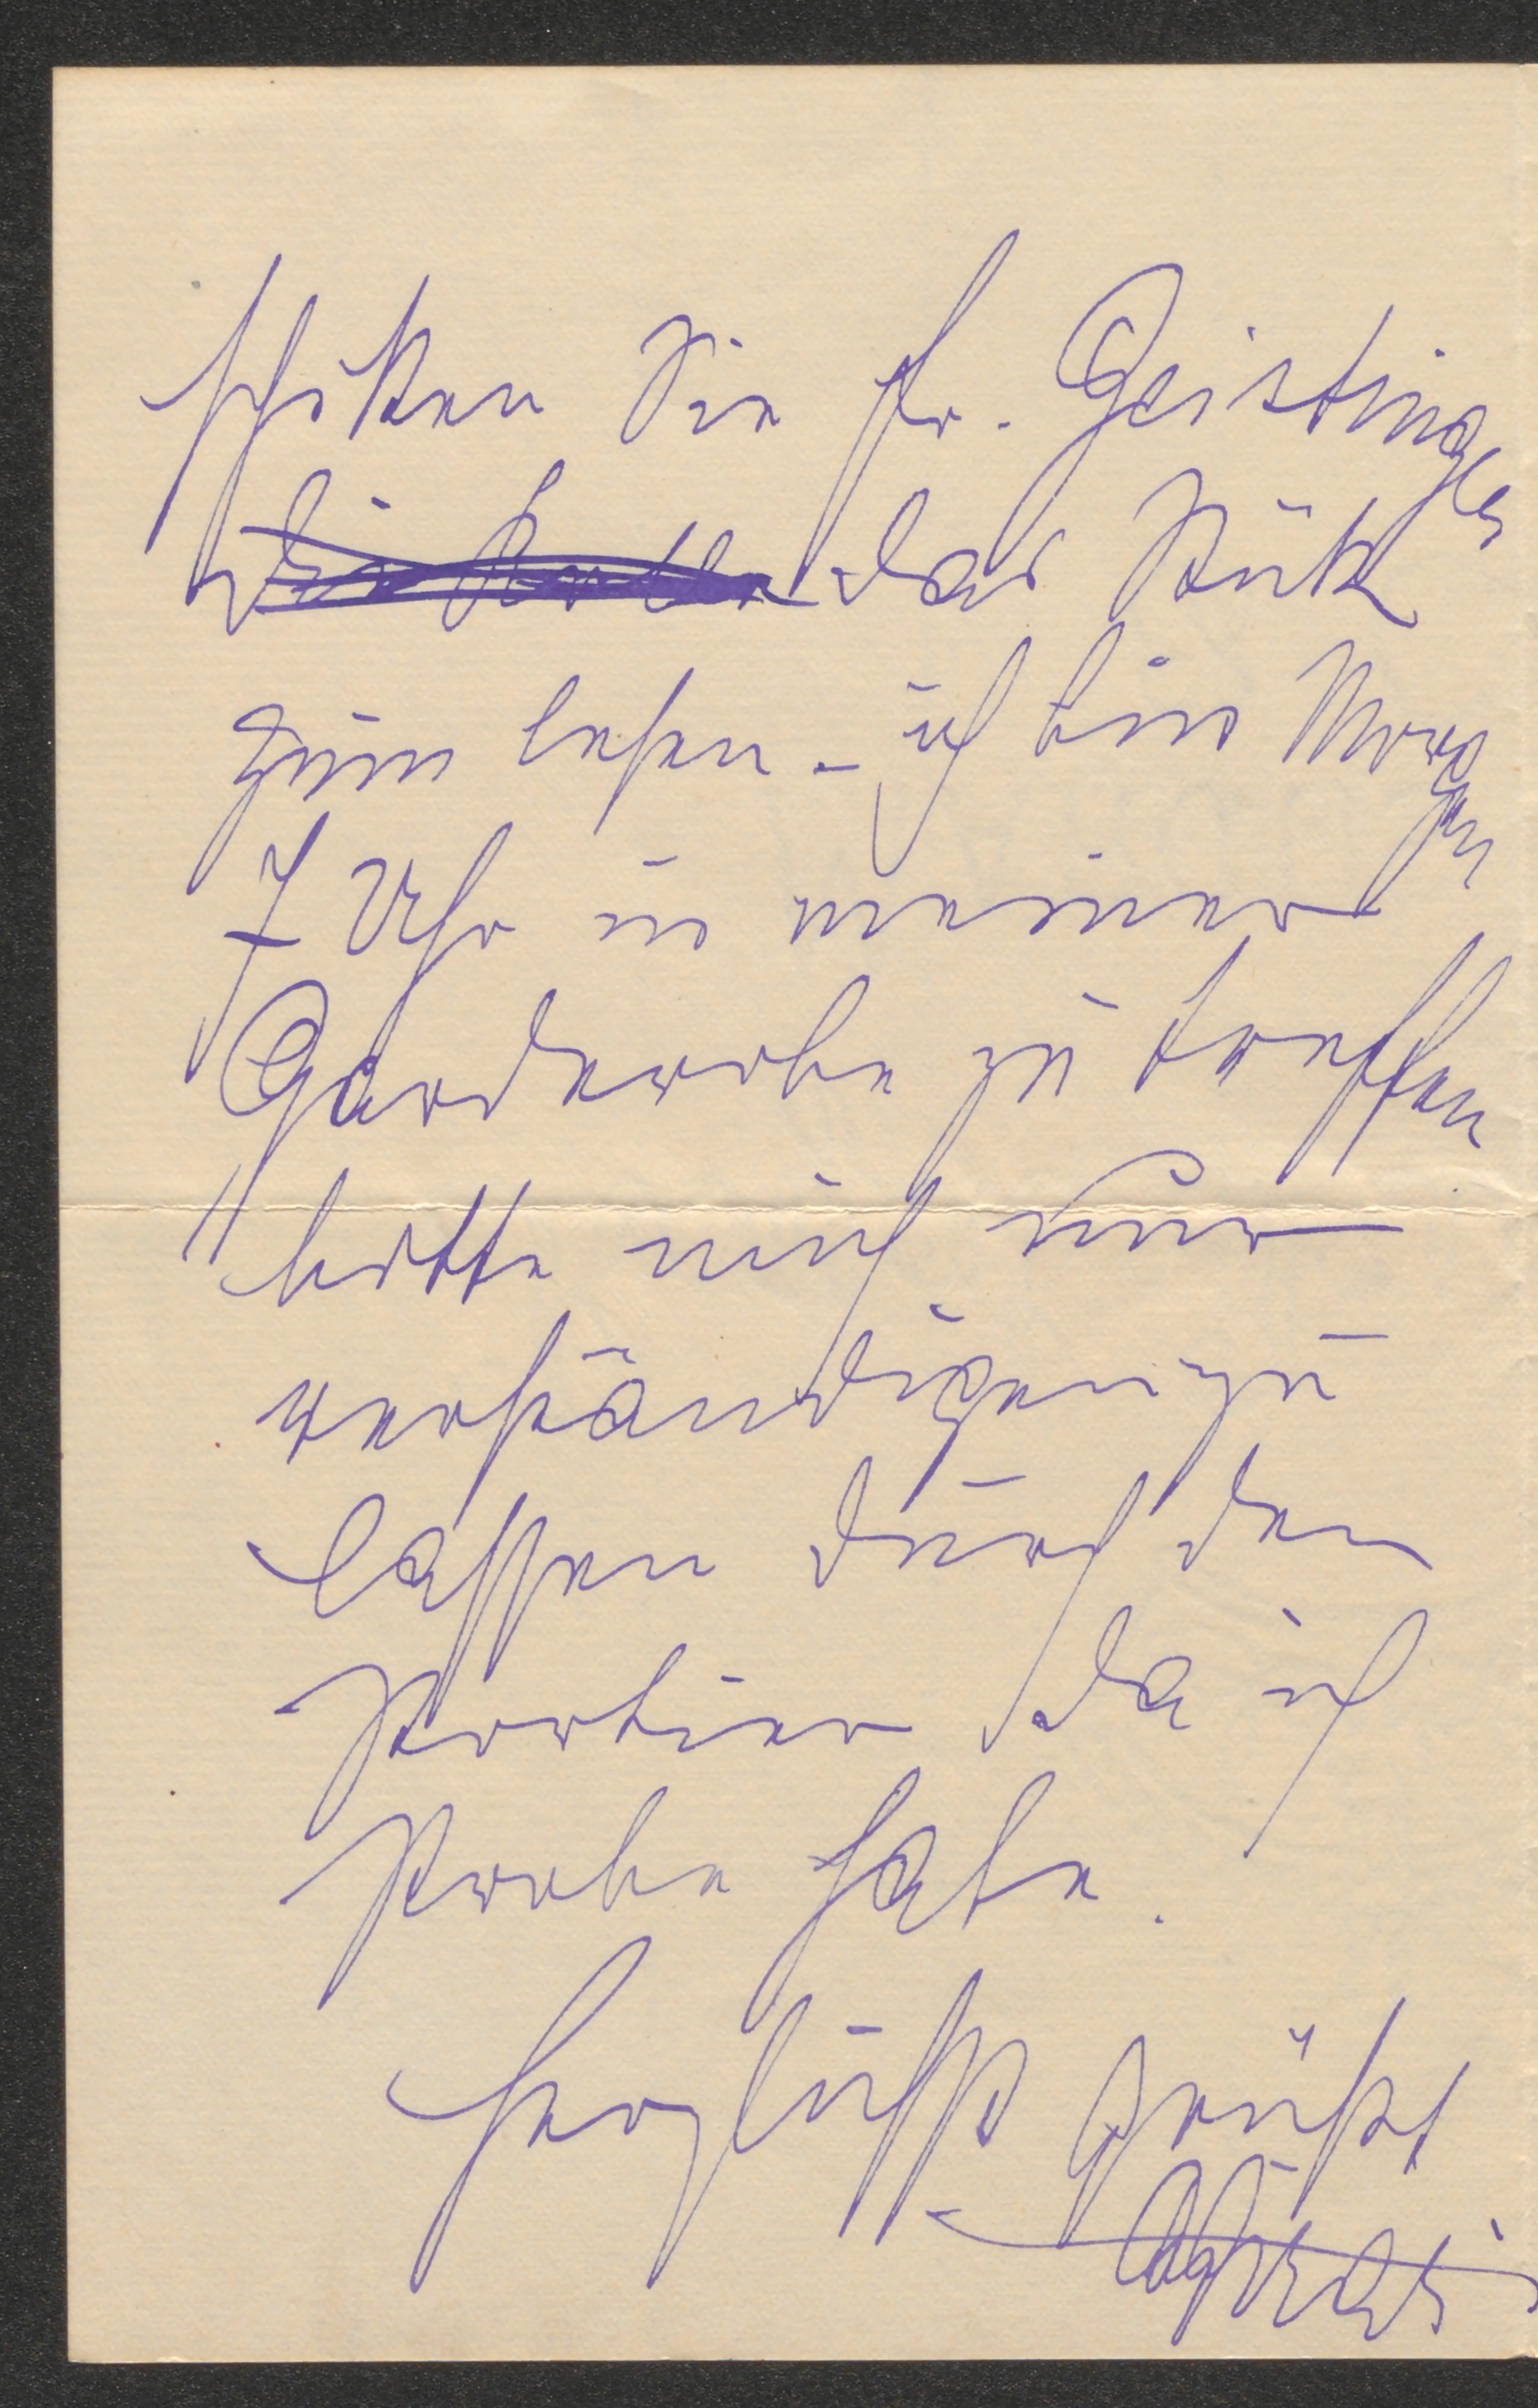 schiken Sie Fr. Geistinger
die Rolle das Stük
zum lesen – ich bin Morgen
7 Uhr in meiner
Garderobe zu treffen
bitte mich nur
verständigen zu
lassen durch den
Portier da ich
Probe habe.
herzlichst grüßt